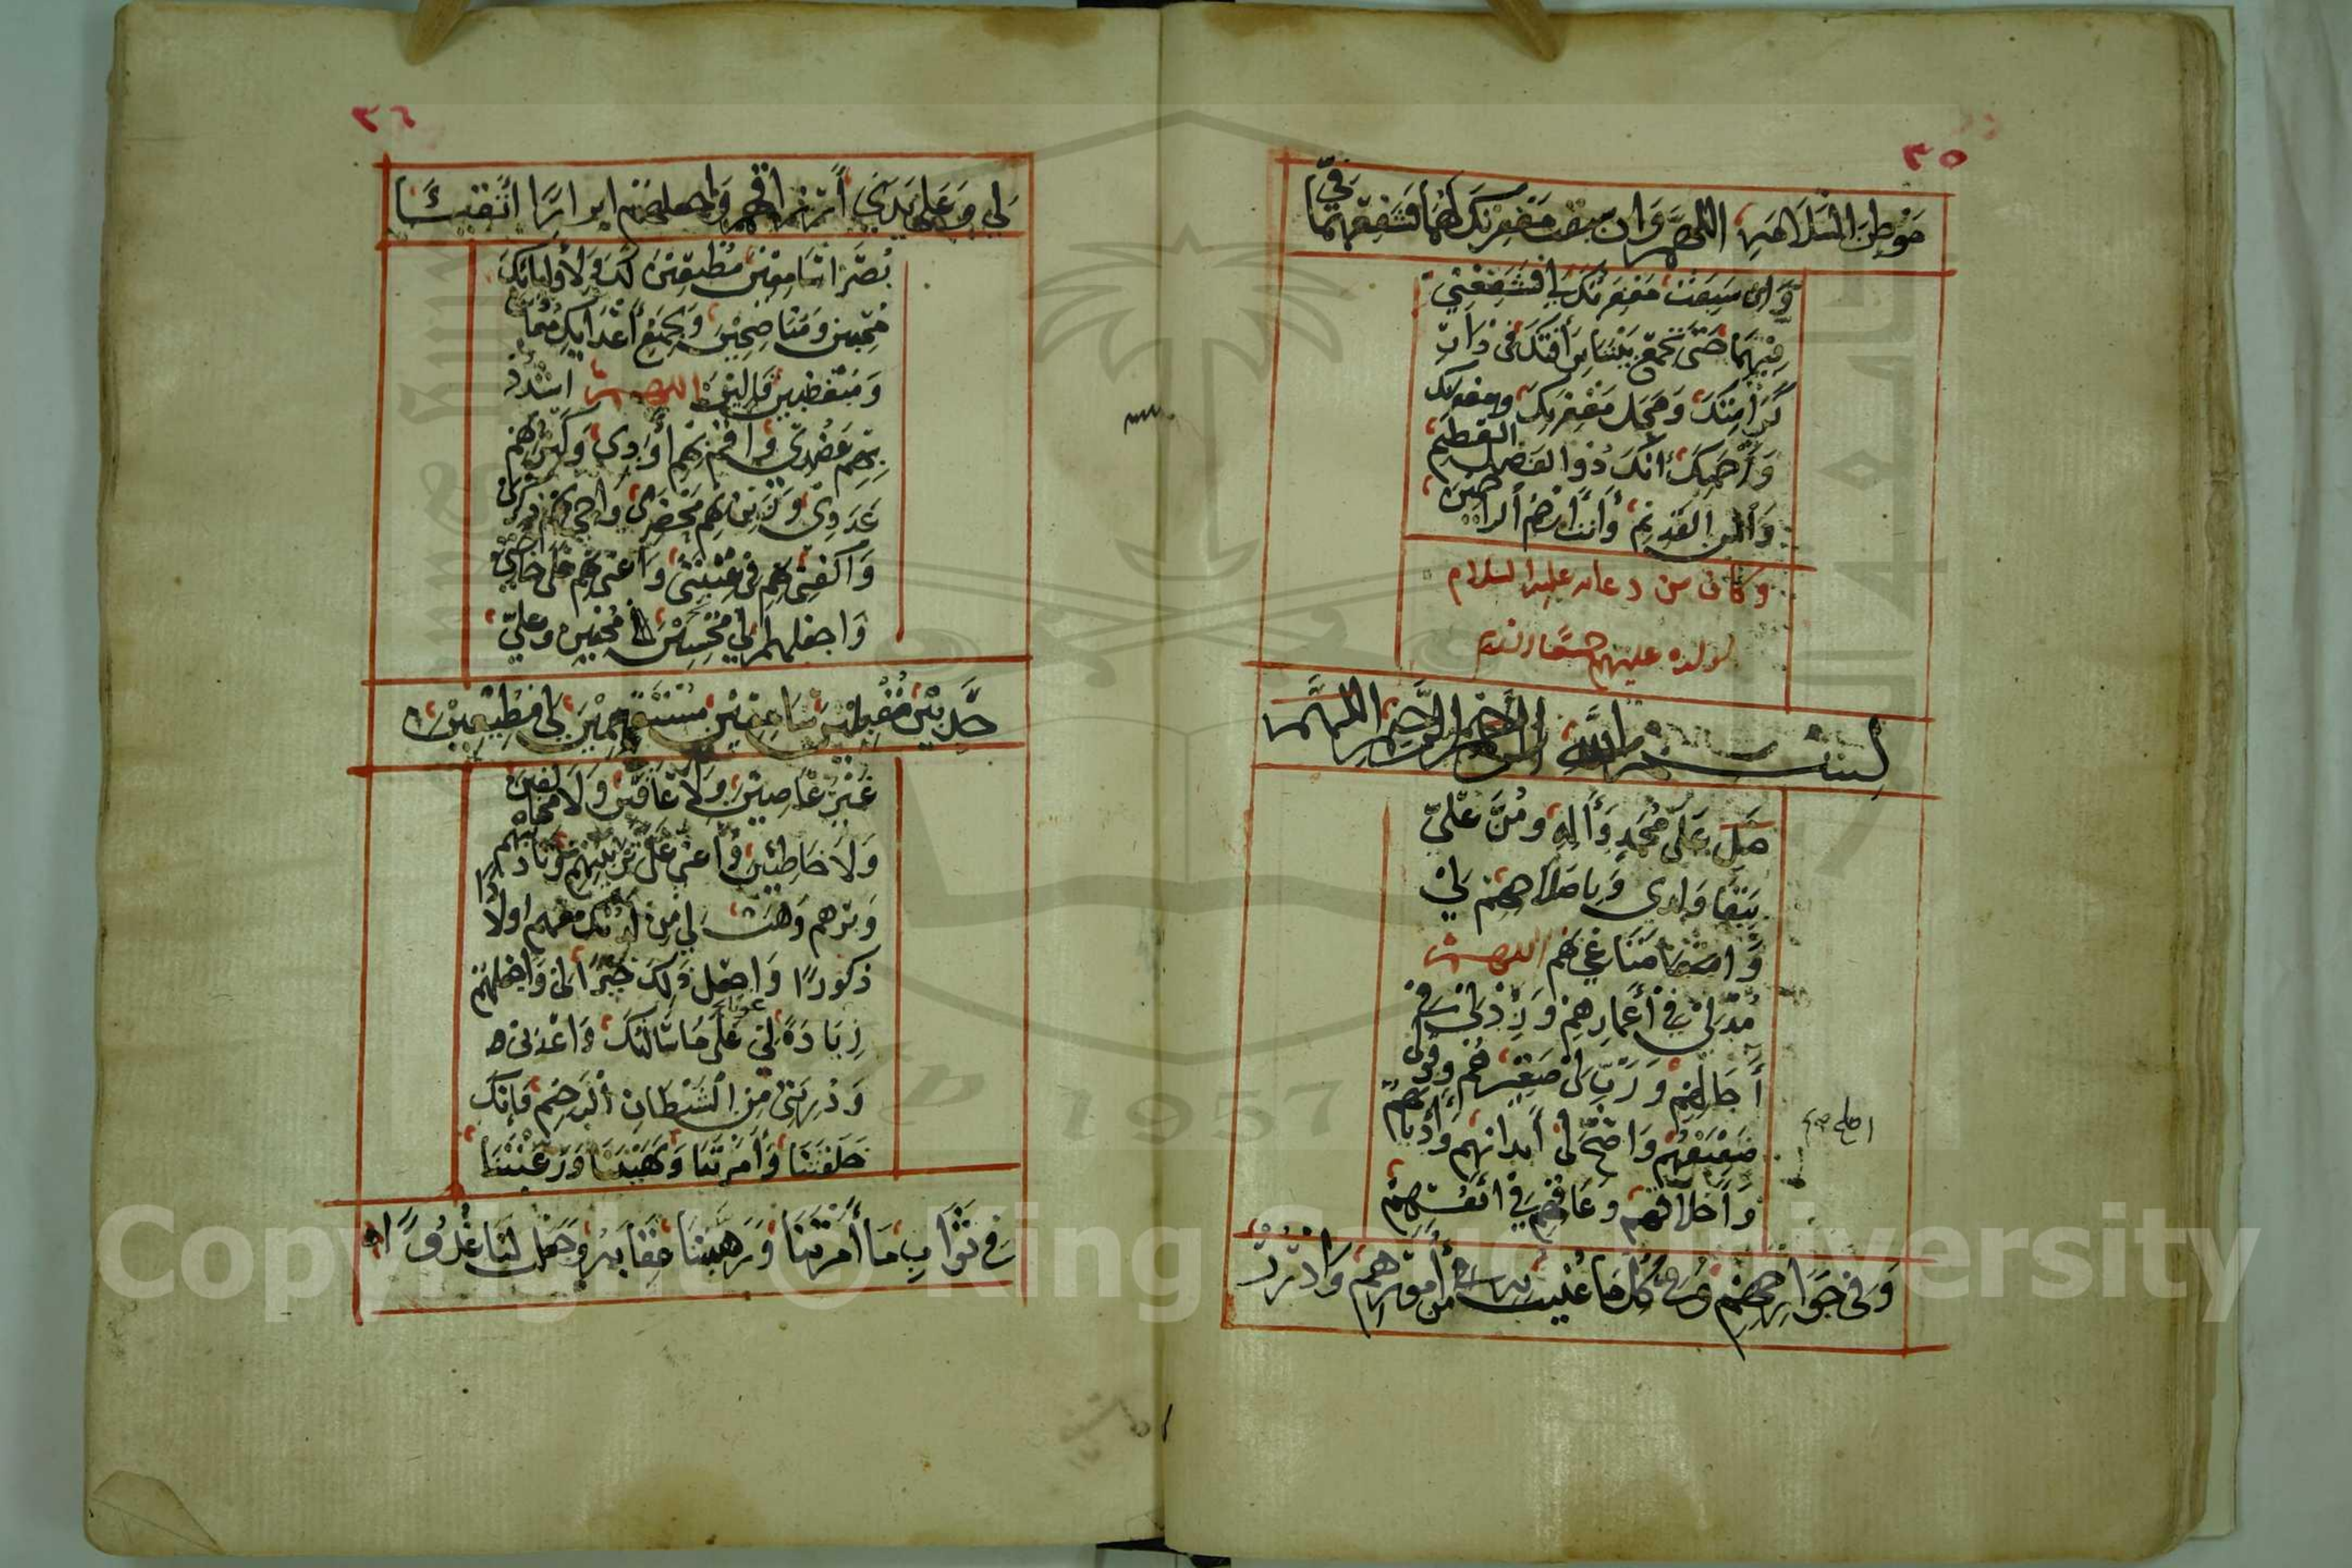 ٣٥
مَوْطِنِ السَّلَامَةِ اللّٰهُمَّ وَان سبقت مغفرتك لَهُمَا فشفعهما
فِيَّ
وَان سَبَقَتْ مَغفِرَتُكَ لِي فَشَفِّعْنِي
فِيْهِمَا حَتَّى نجتمع بَيْننا بِرَأفَتِكَ فى دَارِ
كَرَامَتِكَ وَمَحَل مَغْفِرَتِكَ
وَرَحْمَتِكَ انكَ ذُوا الفَضل العظيم
وَالمن القَدِيْم وَأنت ارْحَمُ الراحمين
وكان من دعائه عليه السلام
لولده عليهم
بِسْمِ اللَّهِ الرَّحْمٰنِ الرَّحِيْمِ اللّٰهُمَّ
صَلِ عَلَى مُحَمَّدٍ وَآلِهِ وَمُنَّ عَلَيَّ
بِبَقَا وَلدى وَبِاصْلَاحِهِمْ لِيْ
وَامتاعى بهم اللهم
مُدَّ لِيْ فِي أعْمَارِهِمْ وَزِدْ لِيْ فِي
آجَالِهِمْ وَرَبِّ لِىْ صَغِيْرهُم وَقَوِّلى
ضَعِيْفَهُمْ وَاصِحَّ لِىْ أبدانهم وَأدْيَانَهُمْ
وَأخلاقهم وعَافِهِم فِيْ انْفُسِهِمْ
وَفى جَوَارِحِهِمْ وَفِيْ كُلّ مَا عُنِيتُ بِه مِنْ أمْرِهِمْ وَادْرِرْ
٣٦
لِي وَعَلى يَدَيَّ أرْزاقهم وَاجعلهم ابرارًا اتْقِيَاءً
بُصَّرَا سَامِعِيْنَ مُطِيْعِيْنَ لَكَ وَلأوليائكَ
مُحِبّين وَمُنَاصِحِيْنَ وَلِجَمِيْعِ أعْدَائِكَ
وَمُبْغِضِيْنَ اللهم اشْدُدْ
بِهِمْ عَضُدِى وَاقِمْ بِهِم أوَدِى وَكَثِّرْ بِهِمْ
عَدَدِى وَزَيِّنْ بِهِمْ مَحْضَرِى وَاحي بِهِمْ ذِكْرِى
وَاكفِنِى بِهِمْ فى غَيْبَتِى وَاعنى بِهِم عَلى حَاجَتِى
وَاجعلهم لِي مُحِبِّيْنَ وعليّ
حَدِبِيْنَ مُقْبِلِيْنَ مُسْتَقِيْمِيْنَ لِى مُطِيْعِيْنَ
غَيْرَ عَاصِيْنَ وَلَا عَاقّين وَلَا مخالفين
وَلَا خَاطِئِيْن وَأعنى عَلى تَرْبِيَتِهِمْ وَتَادِيْبِهِم
وَبرّهم وَهَبْ لِي مِنْ لَدُنْكَ مَعَهُم اولَادًا
ذكورًا وَاجعل ذَلِكَ خَيْرًا لى وَاجْعَلْهُمْ
عونًا
لِى عَلَى مَا سَألتكَ وَاعْذنى
وَذُرِيَتِىْ مِنَ الشَيْطَانِ الرَجِيْم فَإنكَ
خَلَقتَنَا وَأمَرْتَنَا وَنَهَيْتَنَا وَرَغَّبْتَنَا
فِي ثَوَابِ مَا أمَرْتَنَا وَرَهَّبْتَنَا عِقَابَهُ وَجَعَلْتَ لنَا عَدُوًّا
Copyright © King Saud University
1957